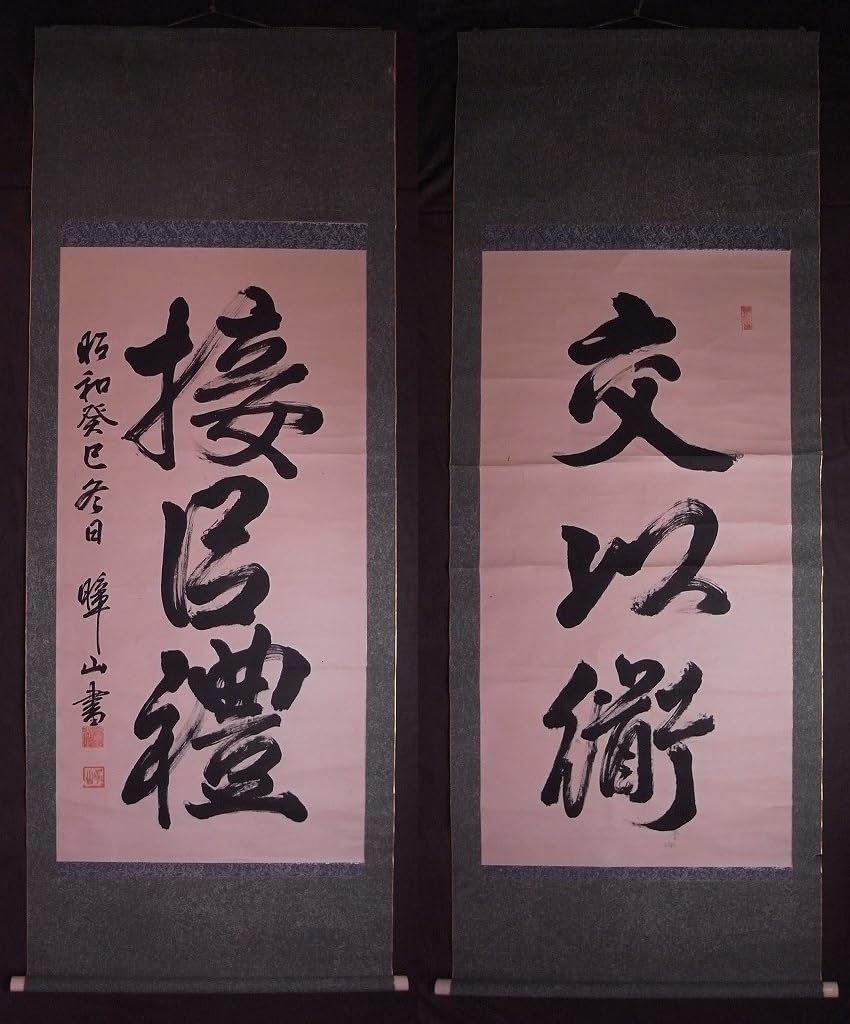 交以衜
接㠯禮
昭和癸巳冬日 暲山書